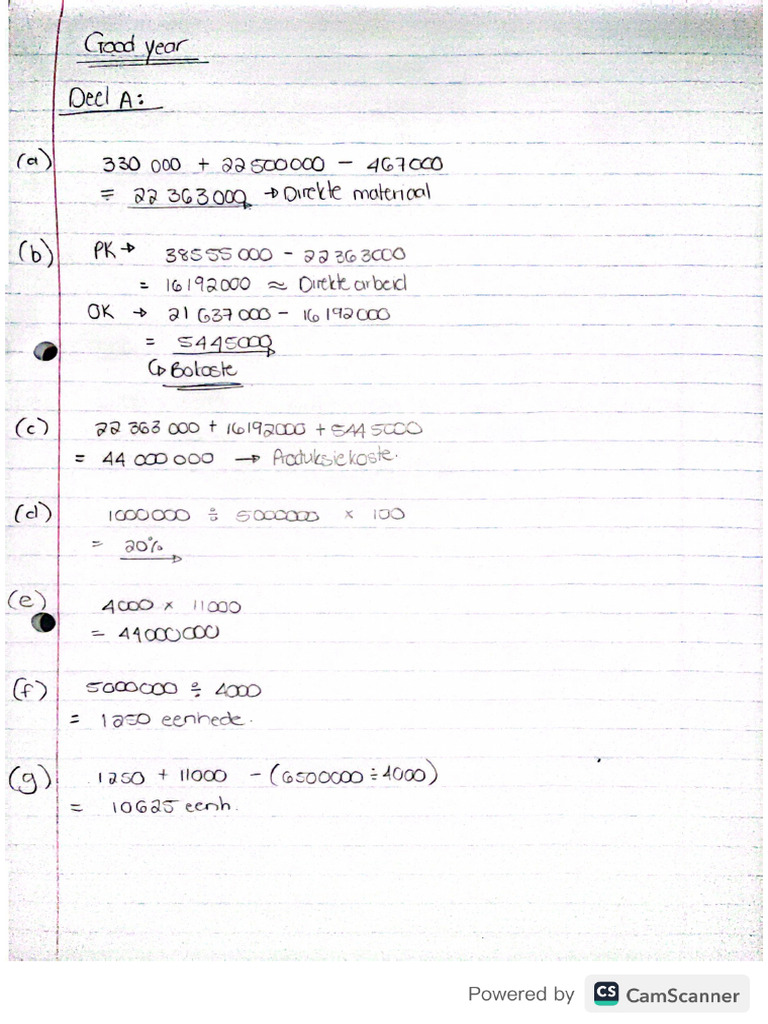 Good year
Deel A:
(a) 330 000 + 22500000 - 467000
= 22 363 000 → Direkte materiaal
(b) PK → 38555 000 - 22 363000
= 16192000 ≈ Direkte arbeid
OK → 21 637 000 - 16 192 000
= 5445000
↳ Bokoste
(c) 22 363 000 + 16192000 + 5445000
= 44 000 000 → Produksiekoste.
(d) 1000000 ÷ 5000000 × 100
= 20%
(e) 4000 × 11000
= 44000 000
(f) 5000000 ÷ 4000
= 1250 eenhede.
(g) 1250 + 11000 - (6500000 ÷ 4000)
= 10625 eenh.
Powered by CS CamScanner